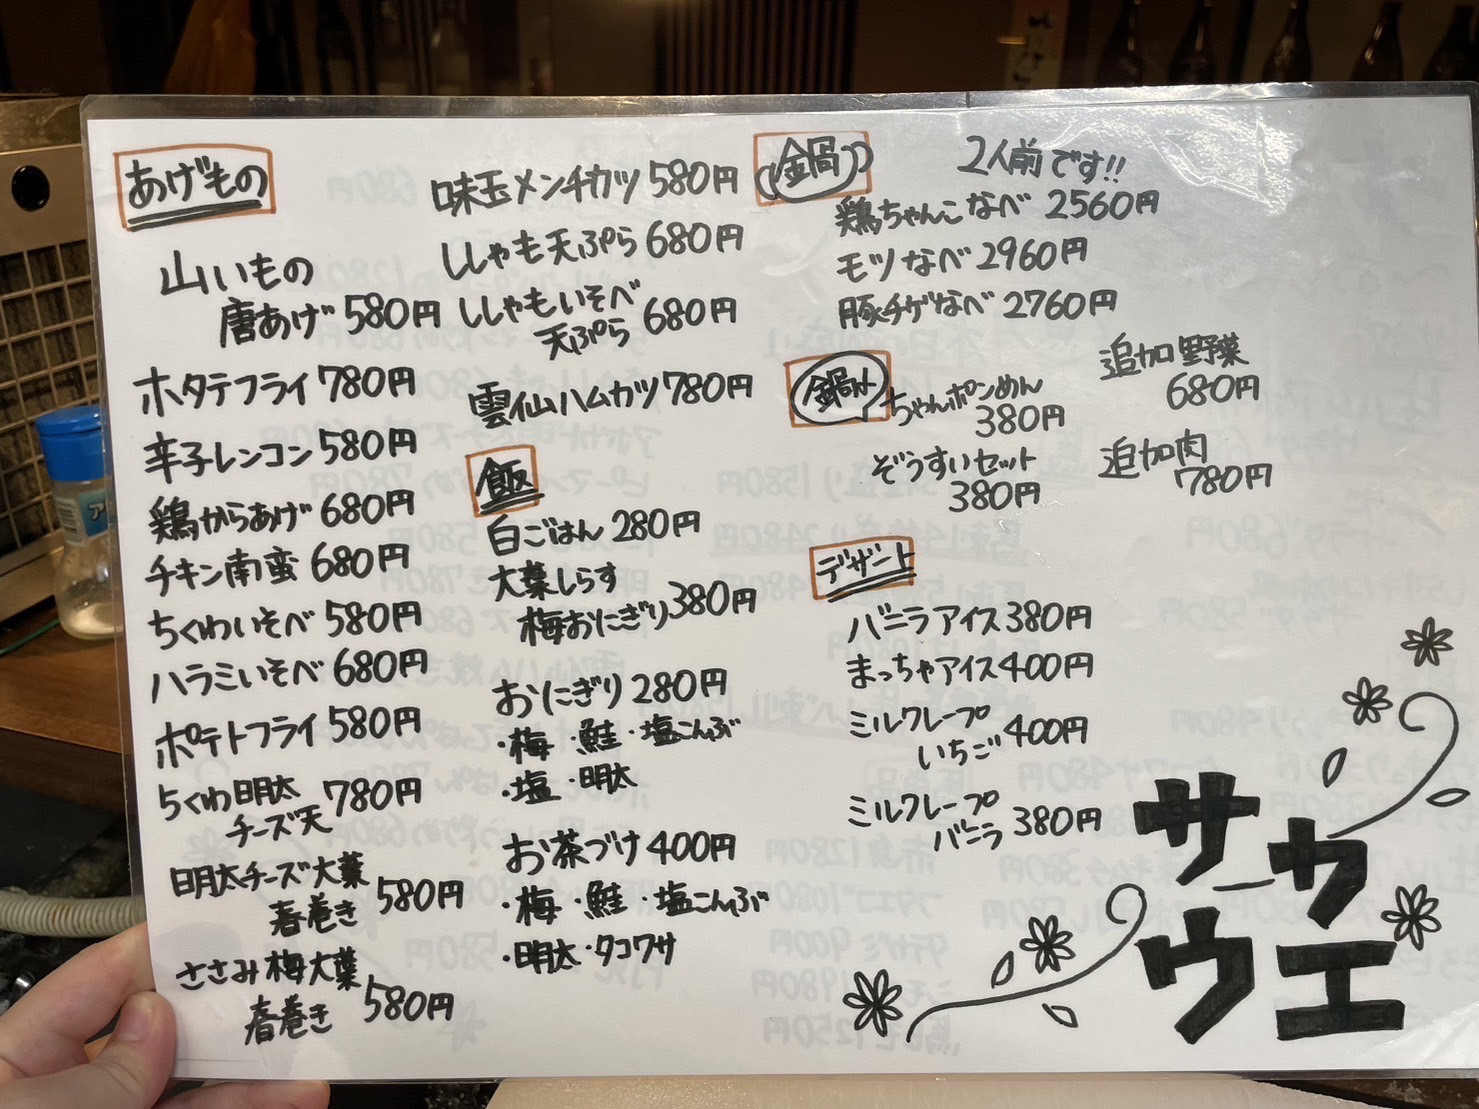 あげもの
山いもの
唐あげ 580円
ホタテフライ 780円
辛子レンコン 580円
鶏からあげ 680円
チキン南蛮 680円
ちくわいそべ 580円
ハラミいそべ 680円
ポテトフライ 580円
ちくわ明太
チーズ天 780円
明太チーズ大葉
春巻き 580円
ささみ梅大葉
春巻き 580円
味玉メンチカツ 580円
ししゃも天ぷら 680円
ししゃもいそべ
天ぷら 680円
雲仙ハムカツ 780円
飯
白ごはん 280円
大葉しらす
梅おにぎり 380円
おにぎり 280円
・梅 ・鮭 ・塩こんぶ
・塩 ・明太
お茶づけ 400円
・梅 ・鮭 ・塩こんぶ
・明太 ・タコワサ
鍋
2人前です!!
鶏ちゃんこなべ 2560円
モツなべ 2960円
豚チゲなべ 2760円
鍋〆
ちゃんポンめん
380円
ぞうすいセット
380円
追加野菜
680円
追加肉
780円
デザート
バニラアイス 380円
まっちゃアイス 400円
ミルクレープ
いちご 400円
ミルクレープ
バニラ 380円
サカ
ウエ